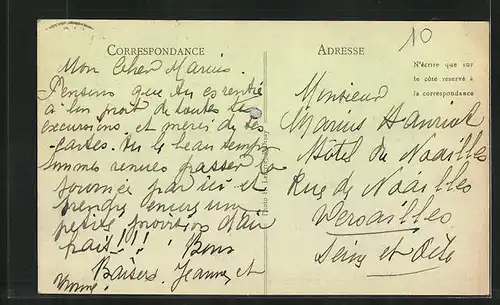 CORRESPONDANCE
Mon Cher Marius.
Pensons que tu es rentré
à bon port de toutes tes
excursions, et merci de tes
cartes. Vu le beau temps
sommes venues passer la
journée par ici et
prendre encore une
petite provision d'air
frais!!! Bons
Baisers. Jeanne, et
Yvonne.
ADRESSE
N'écrire que sur
le côté réservé à
la correspondance
10
Monsieur
Marius Hanriot
Hôtel de Noailles
Rue de Noailles
Versailles
Seine et Oise